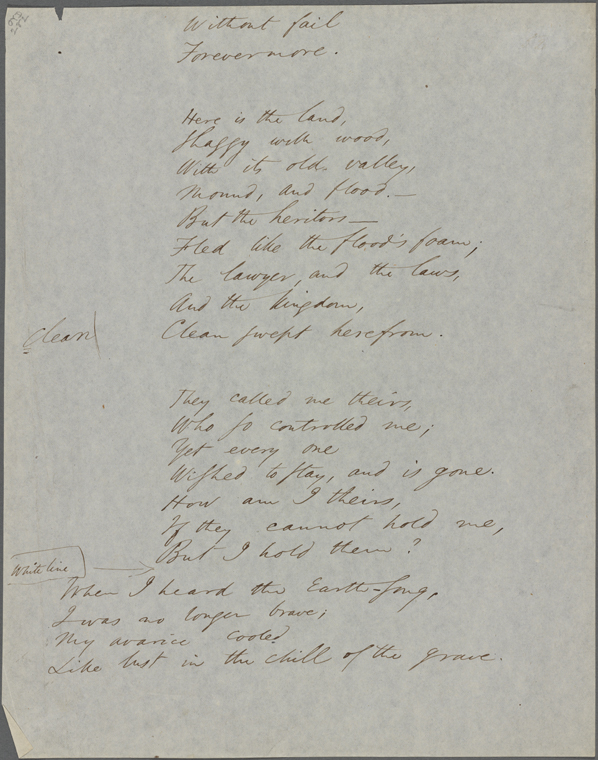 Without fail
Forevermore.
Here is the land,
Shaggy with wood,
With its old valley,
Mound, and flood.—
But the heritors—
Fled like the flood's foam;
The lawyer, and the laws,
And the kingdom,
clean
Clean swept herefrom.
They called me theirs,
Who so controlled me;
Yet every one
Wished to stay, and is gone.
How am I theirs,
If they cannot hold me,
But I hold them?
White line
When I heard the Earth-song,
I was no longer brave;
My avarice cooled
Like lust in the chill of the grave.